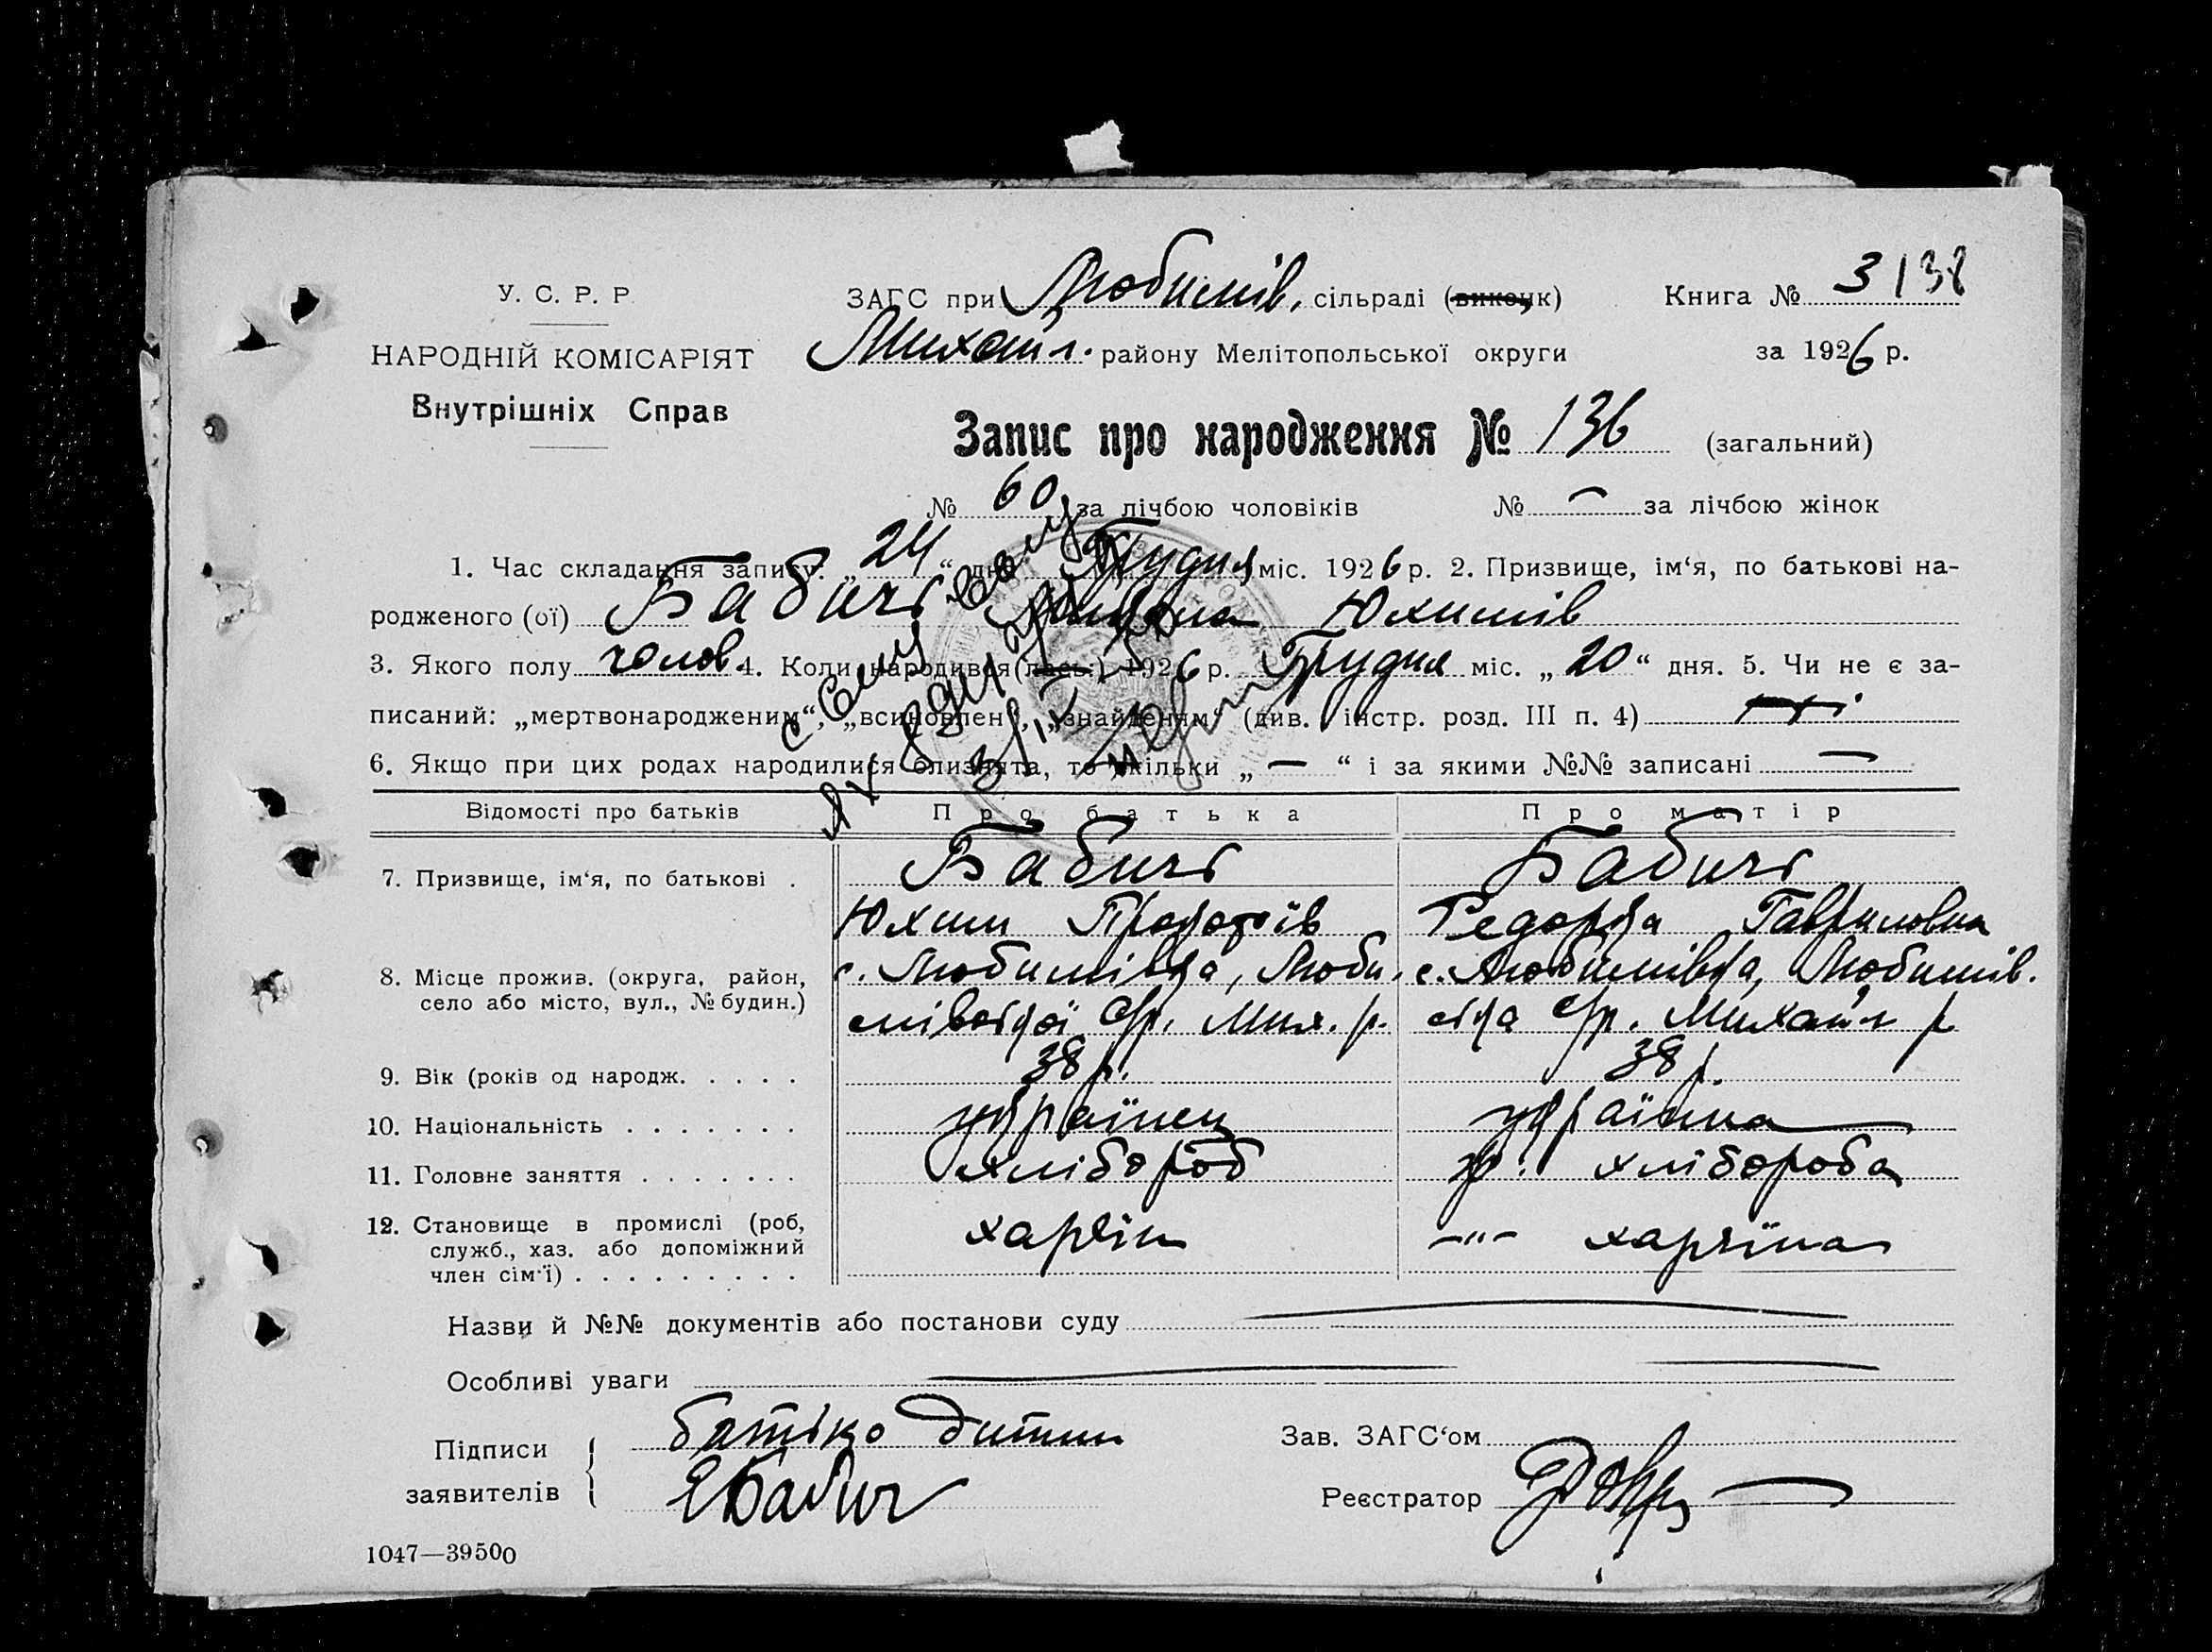 У. С. Р. Р
НАРОДНІЙ КОМІСАРІЯТ
Внутрішніх Справ
ЗАГС при Любимів. сільраді (виконк)
Книга № 3 138
Михайл. району Мелітопольської округи
за 1926 р.
Запис про народження № 136 (загальний)
№ 60 за лічбою чоловіків № — за лічбою жінок
1. Час складання запису. „ 24 “ дня Грудня міс. 1926 р. 2. Призвище, ім‘я, по батькові на-
родженого (ої) Бабич Юхимів
3. Якого полу чолов. 4. Коли народився (лась) 1926 р. Грудня міс. „ 20 “ дня. 5. Чи не є за-
писаний: „мертвонародженим“, „всиновлен“, „знайденям“ (див. інстр. розд. III п. 4) ні
6. Якщо при цих родах народилися близнята, то скільки „ — “ і за якими №№ записані —
Відомості про батьків Про батька Про матір
7. Призвище, ім‘я, по батькові . Бабич Бабич
Юхим Федорка Гавриловна
8. Місце прожив. (округа, район, с. Любимівка, Люби- с. Любимівка, Любимів.
село або місто, вул., № будин.) мівської с/р. Мих. р. ська с/р. Михайл р
9. Вік (років од народж. . . . . 38 р. 38 р.
10. Національність . . . . . . . українец українка
11. Головне заняття . . . . . . . хлібороб хлібороба
12. Становище в промислі (роб, хазяін —"— хазяїна
служб., хаз. або допоміжний
член сім‘ї) . . . . . . . . .
Назви й №№ документів або постанови суду —
Особливі уваги —
Підписи батько дитини
заявителів Є Бабич
Зав. ЗАГС‘ом
Реєстратор
1047—39500